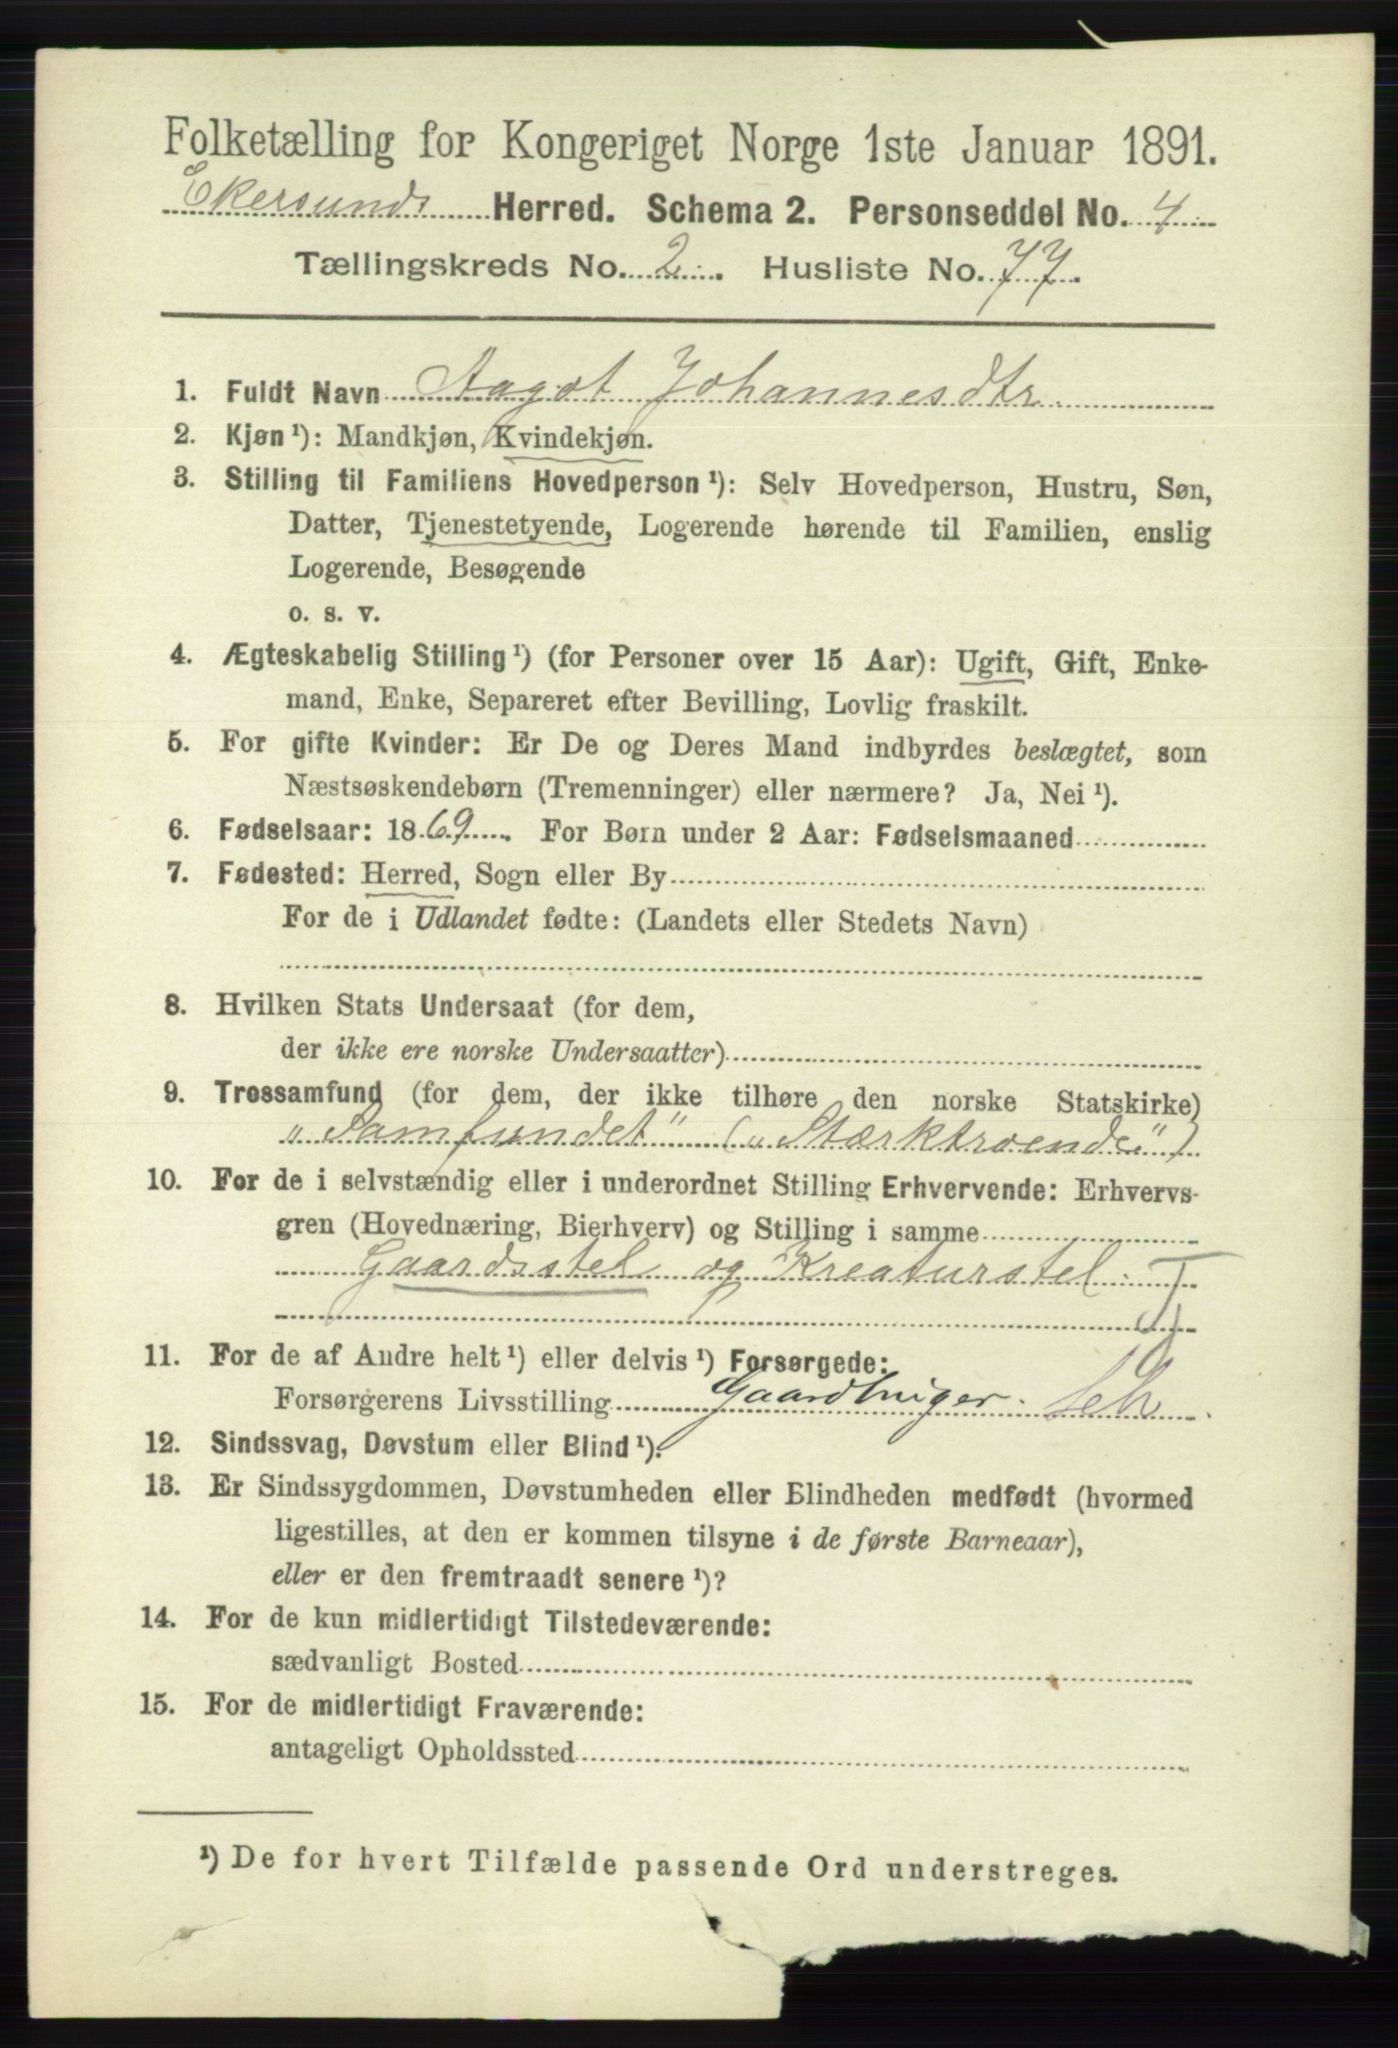 Folketælling for Kongeriget Norge 1ste Januar 1891.
Ekersunds Herred. Schema 2. Personseddel No. 4
Tællingskreds No. 2. Husliste No. 77.
1. Fuldt Navn Aagot Johannesdtr.
2. Kjøn¹): Mandkjøn, Kvindekjøn.
3. Stilling til Familiens Hovedperson¹): Selv Hovedperson, Hustru, Søn,
Datter, Tjenestetyende, Logerende hørende til Familien, enslig
Logerende, Besøgende
o. s. v.
4. Ægteskabelig Stilling¹) (for Personer over 15 Aar): Ugift, Gift, Enke-
mand, Enke, Separeret efter Bevilling, Lovlig fraskilt.
5. For gifte Kvinder: Er De og Deres Mand indbyrdes beslægtet, som
Næstsøskendebørn (Tremenninger) eller nærmere? Ja, Nei¹).
6. Fødselsaar: 1869. For Børn under 2 Aar: Fødselsmaaned
7. Fødested: Herred, Sogn eller By
For de i Udlandet fødte: (Landets eller Stedets Navn)
8. Hvilken Stats Undersaat (for dem,
der ikke ere norske Undersaatter)
9. Trossamfund (for dem, der ikke tilhøre den norske Statskirke)
„Samfundet" („Stærktroende")
10. For de i selvstændig eller i underordnet Stilling Erhvervende: Erhvervs-
gren (Hovednæring, Bierhverv) og Stilling i samme
Gaardsstel og Kreaturstel.
11. For de af Andre helt¹) eller delvis¹) Forsørgede:
Forsørgerens Livsstilling Gaardbruger.
12. Sindssvag, Døvstum eller Blind¹).
13. Er Sindssygdommen, Døvstumheden eller Blindheden medfødt (hvormed
ligestilles, at den er kommen tilsyne i de første Barneaar),
eller er den fremtraadt senere¹)?
14. For de kun midlertidigt Tilstedeværende:
sædvanligt Bosted
15. For de midlertidigt Fraværende:
antageligt Opholdssted
¹) De for hvert Tilfælde passende Ord understreges.